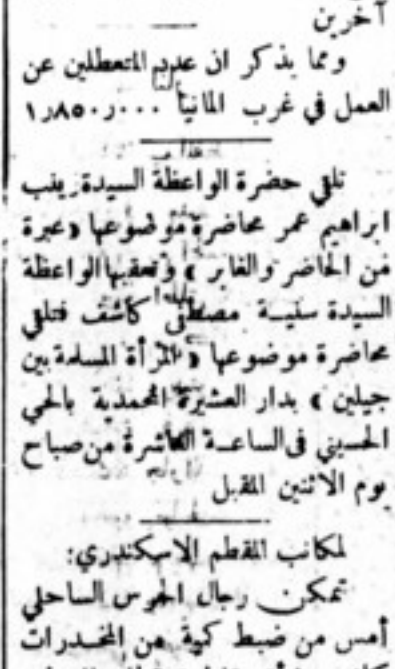 آخرين
ومما يذكر ان عدد المتعطلين عن
العمل في غرب المانيا ١٫٨٥٠٫٠٠٠
تلقي حضرة الواعظة السيدة زينب
ابراهيم عمر محاضرة موضوعها «عبرة
من الحاضر والغابر» وتعقبها الواعظة
السيدة سنية مصطفى كاشف فتلقي
محاضرة موضوعها «المرأة المسلمة بين
جيلين» بدار العشيرة المحمدية بالحي
الحسيني في الساعة العاشرة من صباح
يوم الاثنين المقبل
لمكاتب المقطم الاسكندري:
تمكن رجال الحرس الساحلي
أمس من ضبط كمية من المخدرات